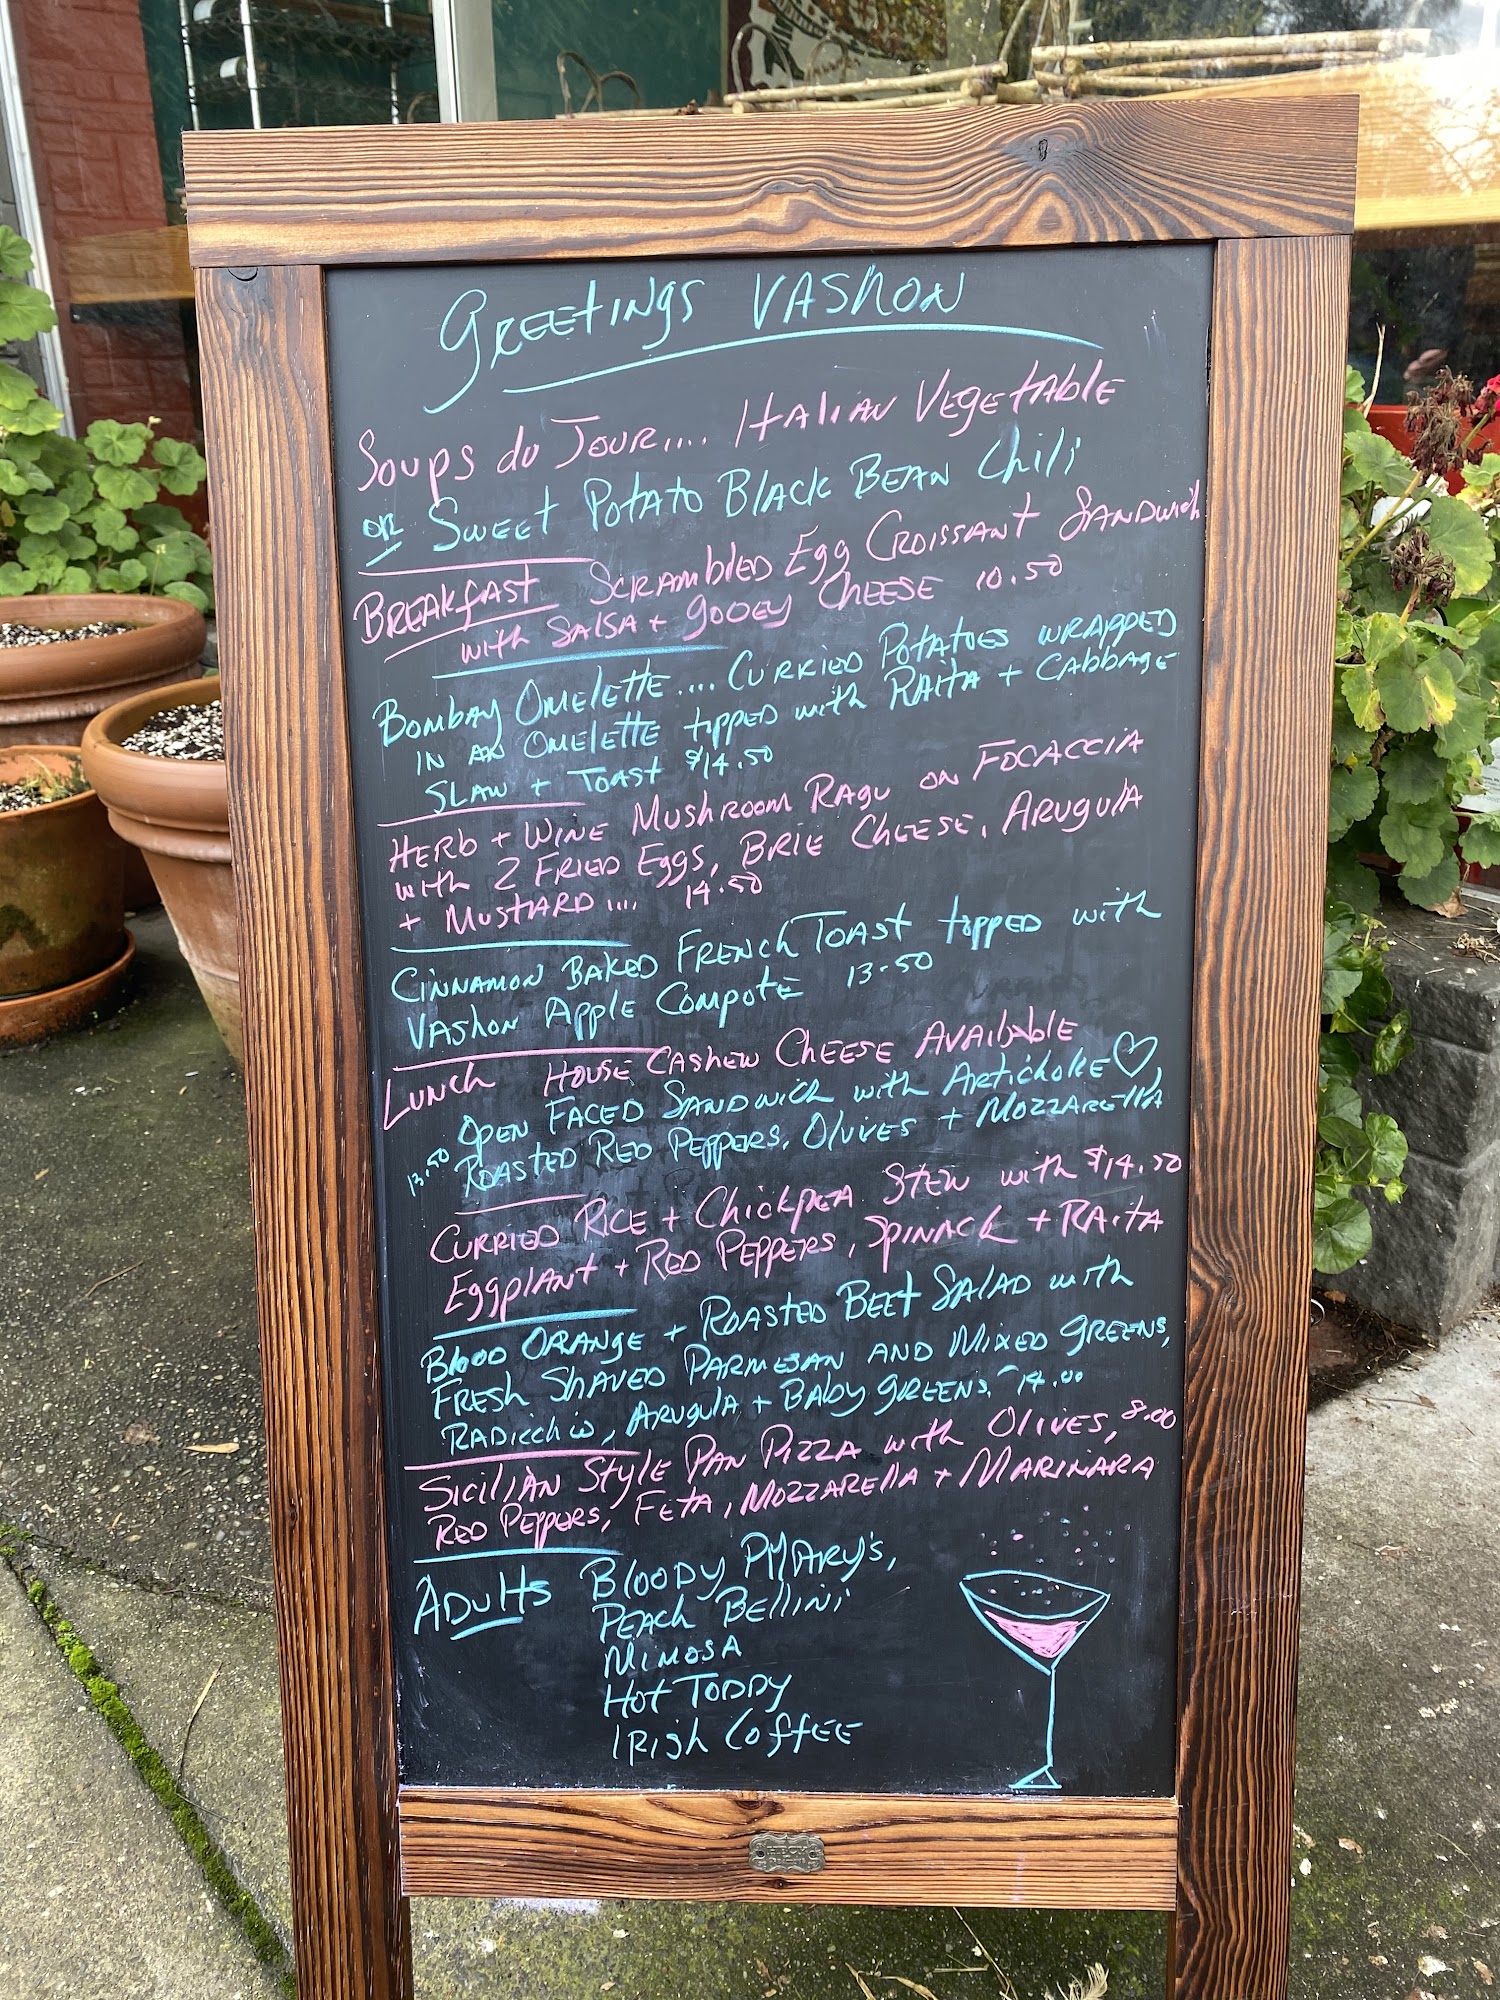 Greetings Vashon
Soups du Jour.... Italian Vegetable
or Sweet Potato Black Bean Chili
Breakfast Scrambled Egg Croissant Sandwich
with Salsa + gooey Cheese 10.50
Bombay Omelette.... Curried Potatoes wrapped
in an Omelette topped with Raita + Cabbage
Slaw + Toast $14.50
Herb + Wine Mushroom Ragu on Focaccia
with 2 Fried Eggs, Brie Cheese, Arugula
+ Mustard.... 14.50
Cinnamon Baked French Toast topped with
Vashon Apple Compote 13.50
Lunch House Cashew Cheese Available
Open Faced Sandwich with Artichoke ♡,
13.50 Roasted Red Peppers, Olives + Mozzarella
Curried Rice + Chickpea Stew with $14.50
Eggplant + Red Peppers, Spinach + Raita
Blood Orange + Roasted Beet Salad with
Fresh Shaved Parmesan and Mixed greens,
Radicchio, Arugula + Baby greens. 14.00
Sicilian Style Pan Pizza with Olives, 8.00
Red Peppers, Feta, Mozzarella + Marinara
Adults Bloody Mary's,
Peach Bellini
Mimosa
Hot Toddy
Irish Coffee